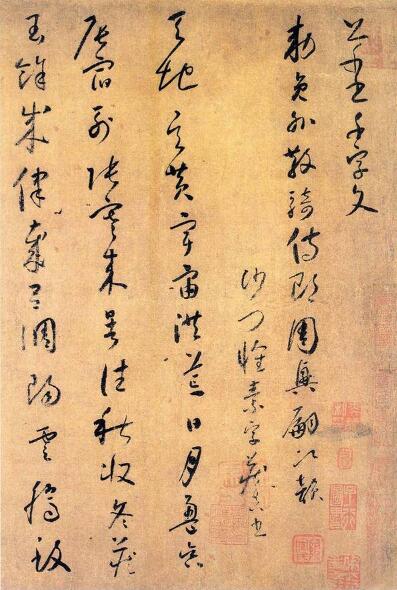 千字文
勅員外散騎侍郎周興嗣次韻
沙門懷素字藏真書
天地玄黃宇宙洪荒日月盈昃
辰宿列張寒來暑往秋收冬藏
閏餘成律歲呂調陽雲騰致